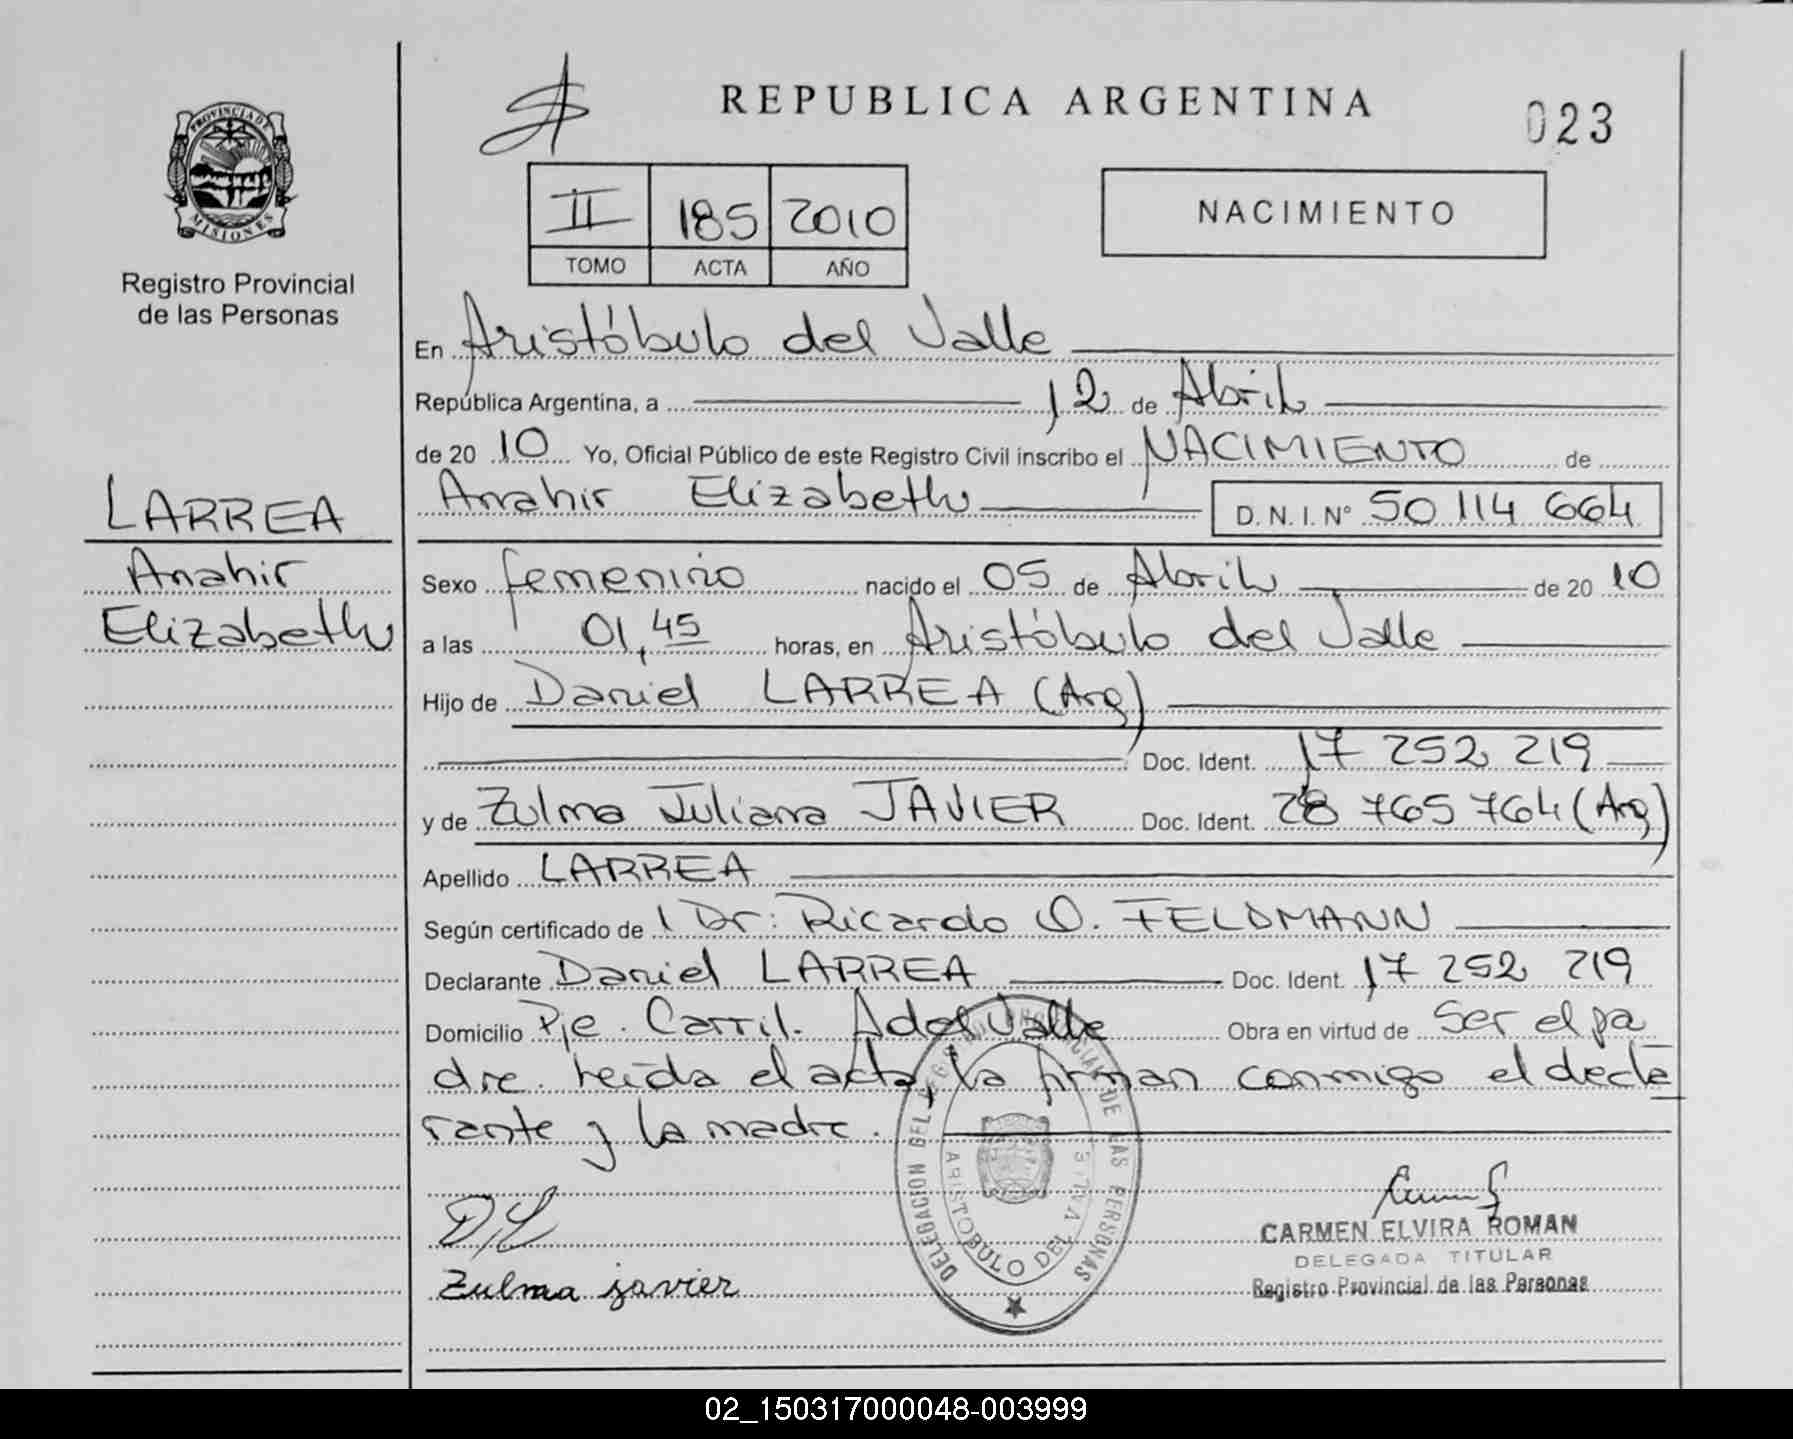 REPUBLICA ARGENTINA
023
PROVINCIA DE
MISIONES
Registro Provincial
de las Personas
II 185 2010
TOMO ACTA AÑO
NACIMIENTO
En Aristóbulo del Valle
República Argentina, a 12 de Abril
de 20 10 Yo, Oficial Público de este Registro Civil inscribo el NACIMIENTO de
Anahir Elizabeth D. N. I. N° 50 114 664
LARREA
Anahir
Elizabeth
Sexo femenino nacido el 05 de Abril de 20 10
a las 01,45 horas, en Aristóbulo del Valle
Hijo de Daniel LARREA (Arg)
Doc. Ident. 17 252 219
y de Zulma Juliana JAVIER Doc. Ident. 28 765 764 (Arg)
Apellido LARREA
Según certificado de 1 Dr: Ricardo O. FELDMANN
Declarante Daniel LARREA Doc. Ident. 17 252 219
Domicilio Pje. Carril. A del Valle Obra en virtud de Ser el pa
dre. Leída el acta, la firman conmigo el decla
rante y la madre.
DELEGACION DEL REGISTRO PROVINCIAL DE LAS PERSONAS
ARISTOBULO DEL VALLE
Zulma javier
CARMEN ELVIRA ROMAN
DELEGADA TITULAR
Registro Provincial de las Personas
02_150317000048-003999